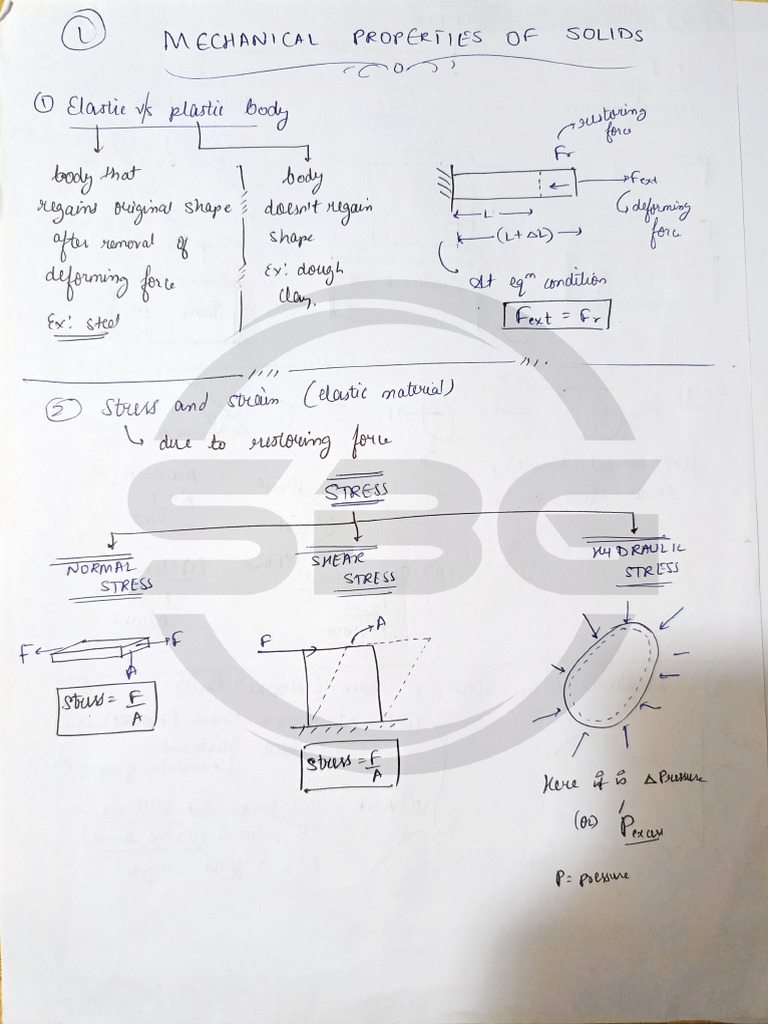 1
MECHANICAL PROPERTIES OF SOLIDS
① Elastic v/s plastic body
body that
regains original shape
after removal of
deforming force
Ex: steel
body
doesn't regain
shape
Ex: dough
clay.
restoring
force
Fr
Fext
deforming
force
L
(L+ΔL)
At eqm condition
Fext = Fr
② Stress and strain (elastic material)
due to restoring force
STRESS
NORMAL
STRESS
SHEAR
STRESS
HYDRAULIC
STRESS
F
F
A
Stress = F/A
F
A
Stress = F/A
Here it is Δ Pressure
(or) Pexcess
P = pressure
SBG